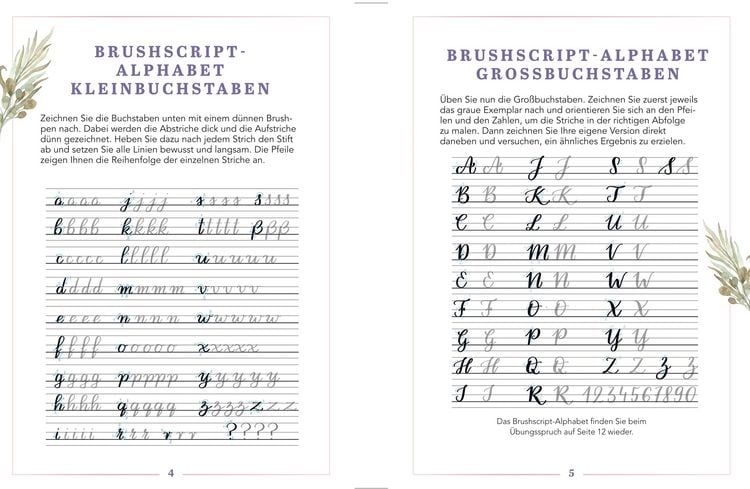 BRUSHSCRIPT-
ALPHABET
KLEINBUCHSTABEN
Zeichnen Sie die Buchstaben unten mit einem dünnen Brush-
pen nach. Dabei werden die Abstriche dick und die Aufstriche
dünn gezeichnet. Heben Sie dazu nach jedem Strich den Stift
ab und setzen Sie alle Linien bewusst und langsam. Die Pfeile
zeigen Ihnen die Reihenfolge der einzelnen Striche an.
a a a a a j j j j j s s s s s s s s s s
b b b b b k k k k k t t t t t β β β
c c c c c l l l l l u u u u u
d d d d m m m m v v v v v
e e e e n n n n w w w w w
f f f f o o o o o x x x x x
g g g g p p p p p y y y y y
h h h h q q q q q z z z z z z z
i i i i i r r r r r r ? ? ? ?
4
BRUSHSCRIPT-ALPHABET
GROSSBUCHSTABEN
Üben Sie nun die Großbuchstaben. Zeichnen Sie zuerst jeweils
das graue Exemplar nach und orientieren Sie sich an den Pfei-
len und den Zahlen, um die Striche in der richtigen Abfolge
zu malen. Dann zeichnen Sie Ihre eigene Version direkt
daneben und versuchen, ein ähnliches Ergebnis zu erzielen.
A A J J S S S S
B B K K T T
C C L L U U
D D M M V V
E E N N W W
F F O O X X
G G P P Y Y
H H Q Q Z Z Z Z
I I R R 1234567890
Das Brushscript-Alphabet finden Sie beim
Übungsspruch auf Seite 12 wieder.
5